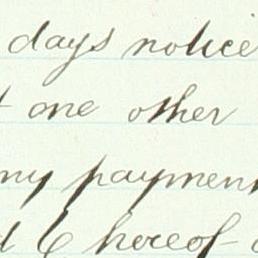 days notice
one other
ny payment
hereof